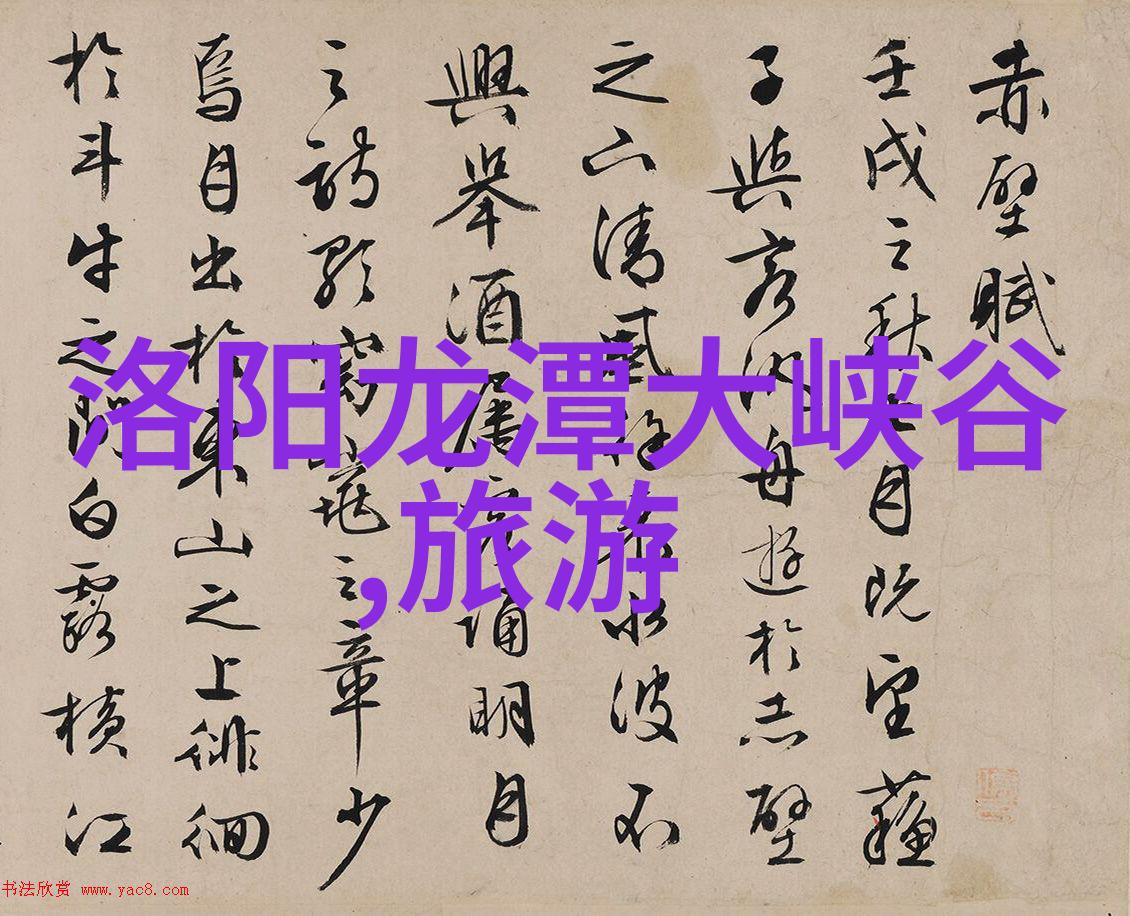 赤壁賦
壬戌之秋七月既望蘓
子與客汎舟遊於赤壁
之下清風徐來水波不
興舉酒屬客誦明月
之詩歌窈窕之章少
焉月出於東山之上徘徊
於斗牛之間白露橫江
洛阳龙潭大峡谷
,旅游
书法欣赏 www.yac8.com